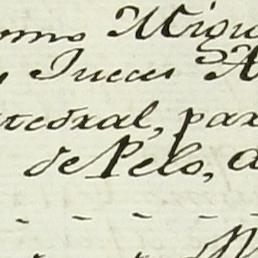 omo Migu
Jueces A
tedral, par
de Pelo, a